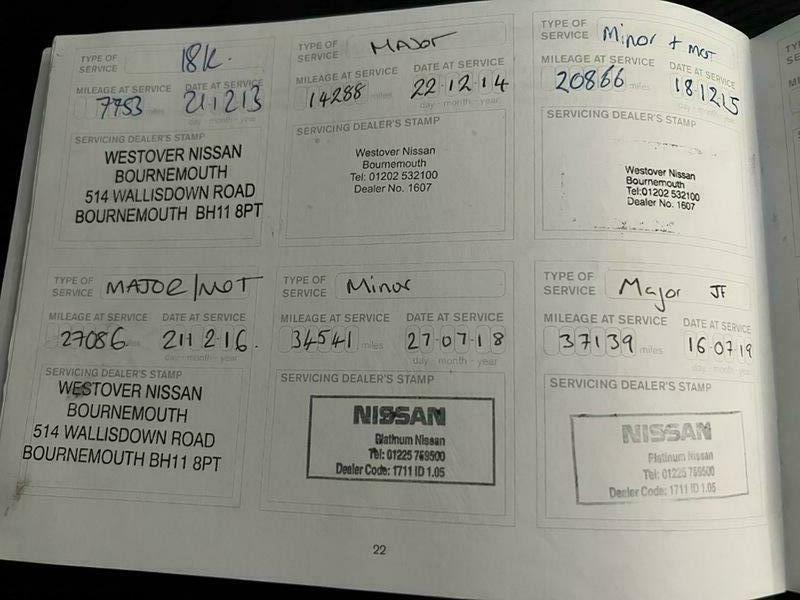 TYPE OF SERVICE 18K.
MILEAGE AT SERVICE DATE AT SERVICE
7753 miles 21 12 13
day - month - year
SERVICING DEALER'S STAMP
WESTOVER NISSAN
BOURNEMOUTH
514 WALLISDOWN ROAD
BOURNEMOUTH BH11 8PT
TYPE OF SERVICE MAJOR
MILEAGE AT SERVICE DATE AT SERVICE
14288 miles 22 12 14
day - month - year
SERVICING DEALER'S STAMP
Westover Nissan
Bournemouth
Tel: 01202 532100
Dealer No. 1607
TYPE OF SERVICE Minor + MOT
MILEAGE AT SERVICE DATE AT SERVICE
20866 miles 18 12 15
day - month - year
SERVICING DEALER'S STAMP
Westover Nissan
Bournemouth
Tel:01202 532100
Dealer No. 1607
TYPE OF SERVICE MAJOR/MOT
MILEAGE AT SERVICE DATE AT SERVICE
27086 miles 21 12 16.
day - month - year
SERVICING DEALER'S STAMP
WESTOVER NISSAN
BOURNEMOUTH
514 WALLISDOWN ROAD
BOURNEMOUTH BH11 8PT
TYPE OF SERVICE Minor
MILEAGE AT SERVICE DATE AT SERVICE
34541 miles 27 07 18
day - month - year
SERVICING DEALER'S STAMP
NISSAN
Platinum Nissan
Tel: 01225 759500
Dealer Code: 1711 ID 1.05
TYPE OF SERVICE Major JF
MILEAGE AT SERVICE DATE AT SERVICE
37139 miles 16 07 19
day - month - year
SERVICING DEALER'S STAMP
NISSAN
Platinum Nissan
Tel: 01225 759500
Dealer Code: 1711 ID 1.05
22